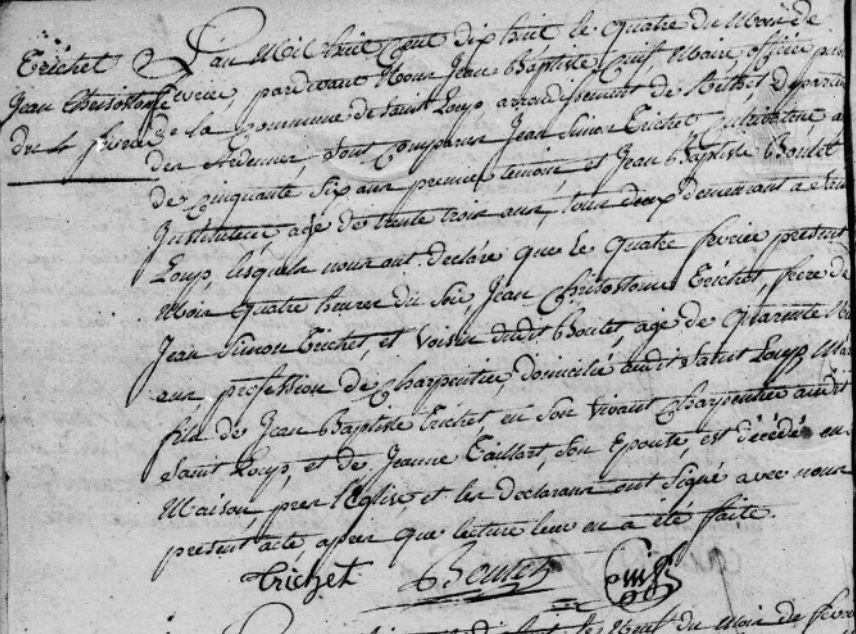 Trichet
Jean Chrisostome
du 4 fevrier
L'an Mil huit Cent dix huit le Quatre du Mois de
fevrier, pardevant Nous Jean Baptiste Cuif Maire officier pu
de la Commune de Saint Loup arrondissement de Rethel Departem
des Ardennes, sont Comparus Jean Simon Trichet Cultivateur, a
de Cinquante Six ans premier temoin, et Jean Baptiste Boulet
Instituteur, agé de trente trois ans, tous deux demeurant a Sain
Loup, lesquels nous ont declaré que le Quatre fevrier present
Mois Quatre heures du Soir, Jean Chrisostome Trichet, frere de
Jean Simon Trichet, et Voisin dudit Boulet, agé de Quarente
ans, profession de Charpentier, domicilié audit Saint Loup,
fils de Jean Baptiste Trichet, en Son Vivant Charpentier audit
Saint Loup, et de Jeanne Taillart, Son Epouse, est décédé en
Maison, pres l'Eglise, et les declarans ont Signé avec nous
present acte, apres que lecture leur en a été faite.
Trichet Boulet Cuif
le Neuf du Mois de fevri